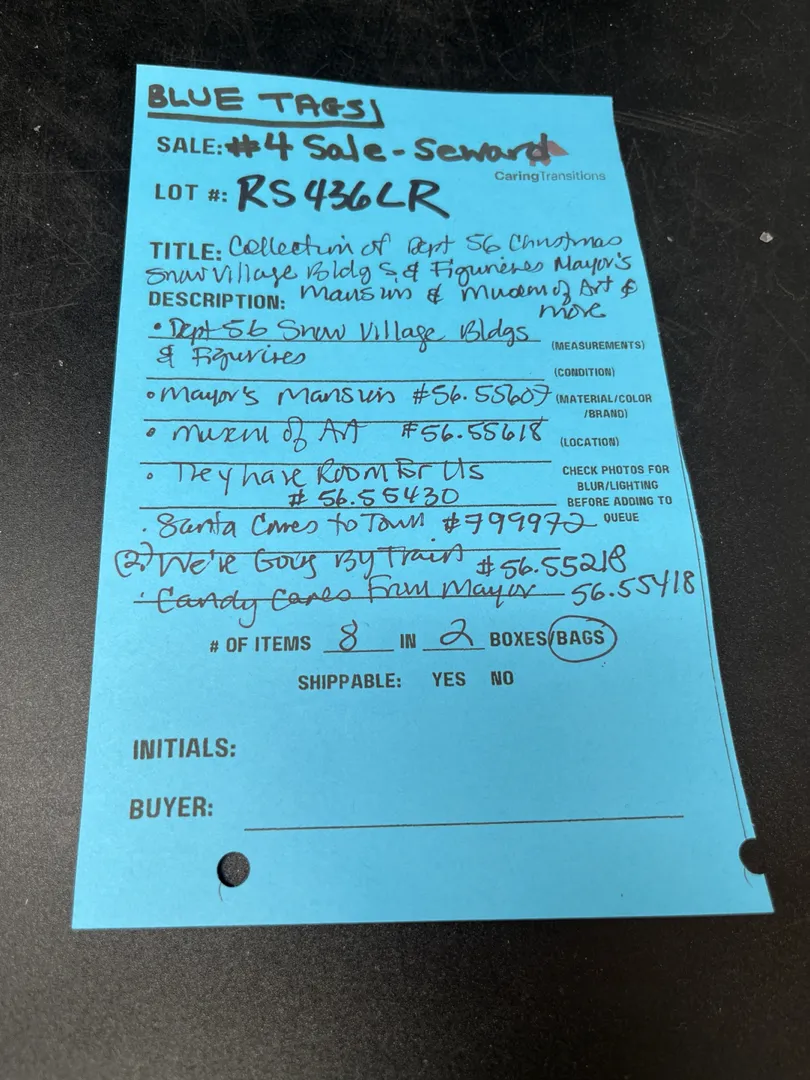 BLUE TAGS
SALE: #4 Sale - Seward
CaringTransitions
LOT #: RS436LR
TITLE: Collection of Dept 56 Christmas
Snow Village Bldgs & Figurines Mayor's
DESCRIPTION: Mansion & Museum of Art &
more
• Dept 56 Snow Village Bldgs
& Figurines
(MEASUREMENTS)
(CONDITION)
• Mayor's Mansion #56.55607
(MATERIAL/COLOR
/BRAND)
• Museum of Art #56.55618
(LOCATION)
• They have Room For Us
# 56.55430
CHECK PHOTOS FOR
BLUR/LIGHTING
BEFORE ADDING TO
QUEUE
• Santa Comes to Town #799972
(2) We're Going By Train #56.55218
• Candy Canes From Mayor 56.55418
# OF ITEMS 8 IN 2 BOXES/BAGS
SHIPPABLE: YES NO
INITIALS:
BUYER: